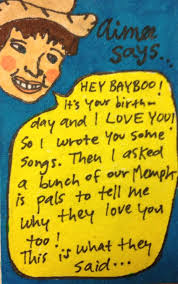 aimee
says...
HEY BAYBOO!
it's your birth-
day and I LOVE YOU!
So I wrote you some
songs. Then I asked
a bunch of our Memph
is pals to tell me
why they love you
too!
This is what they
said...